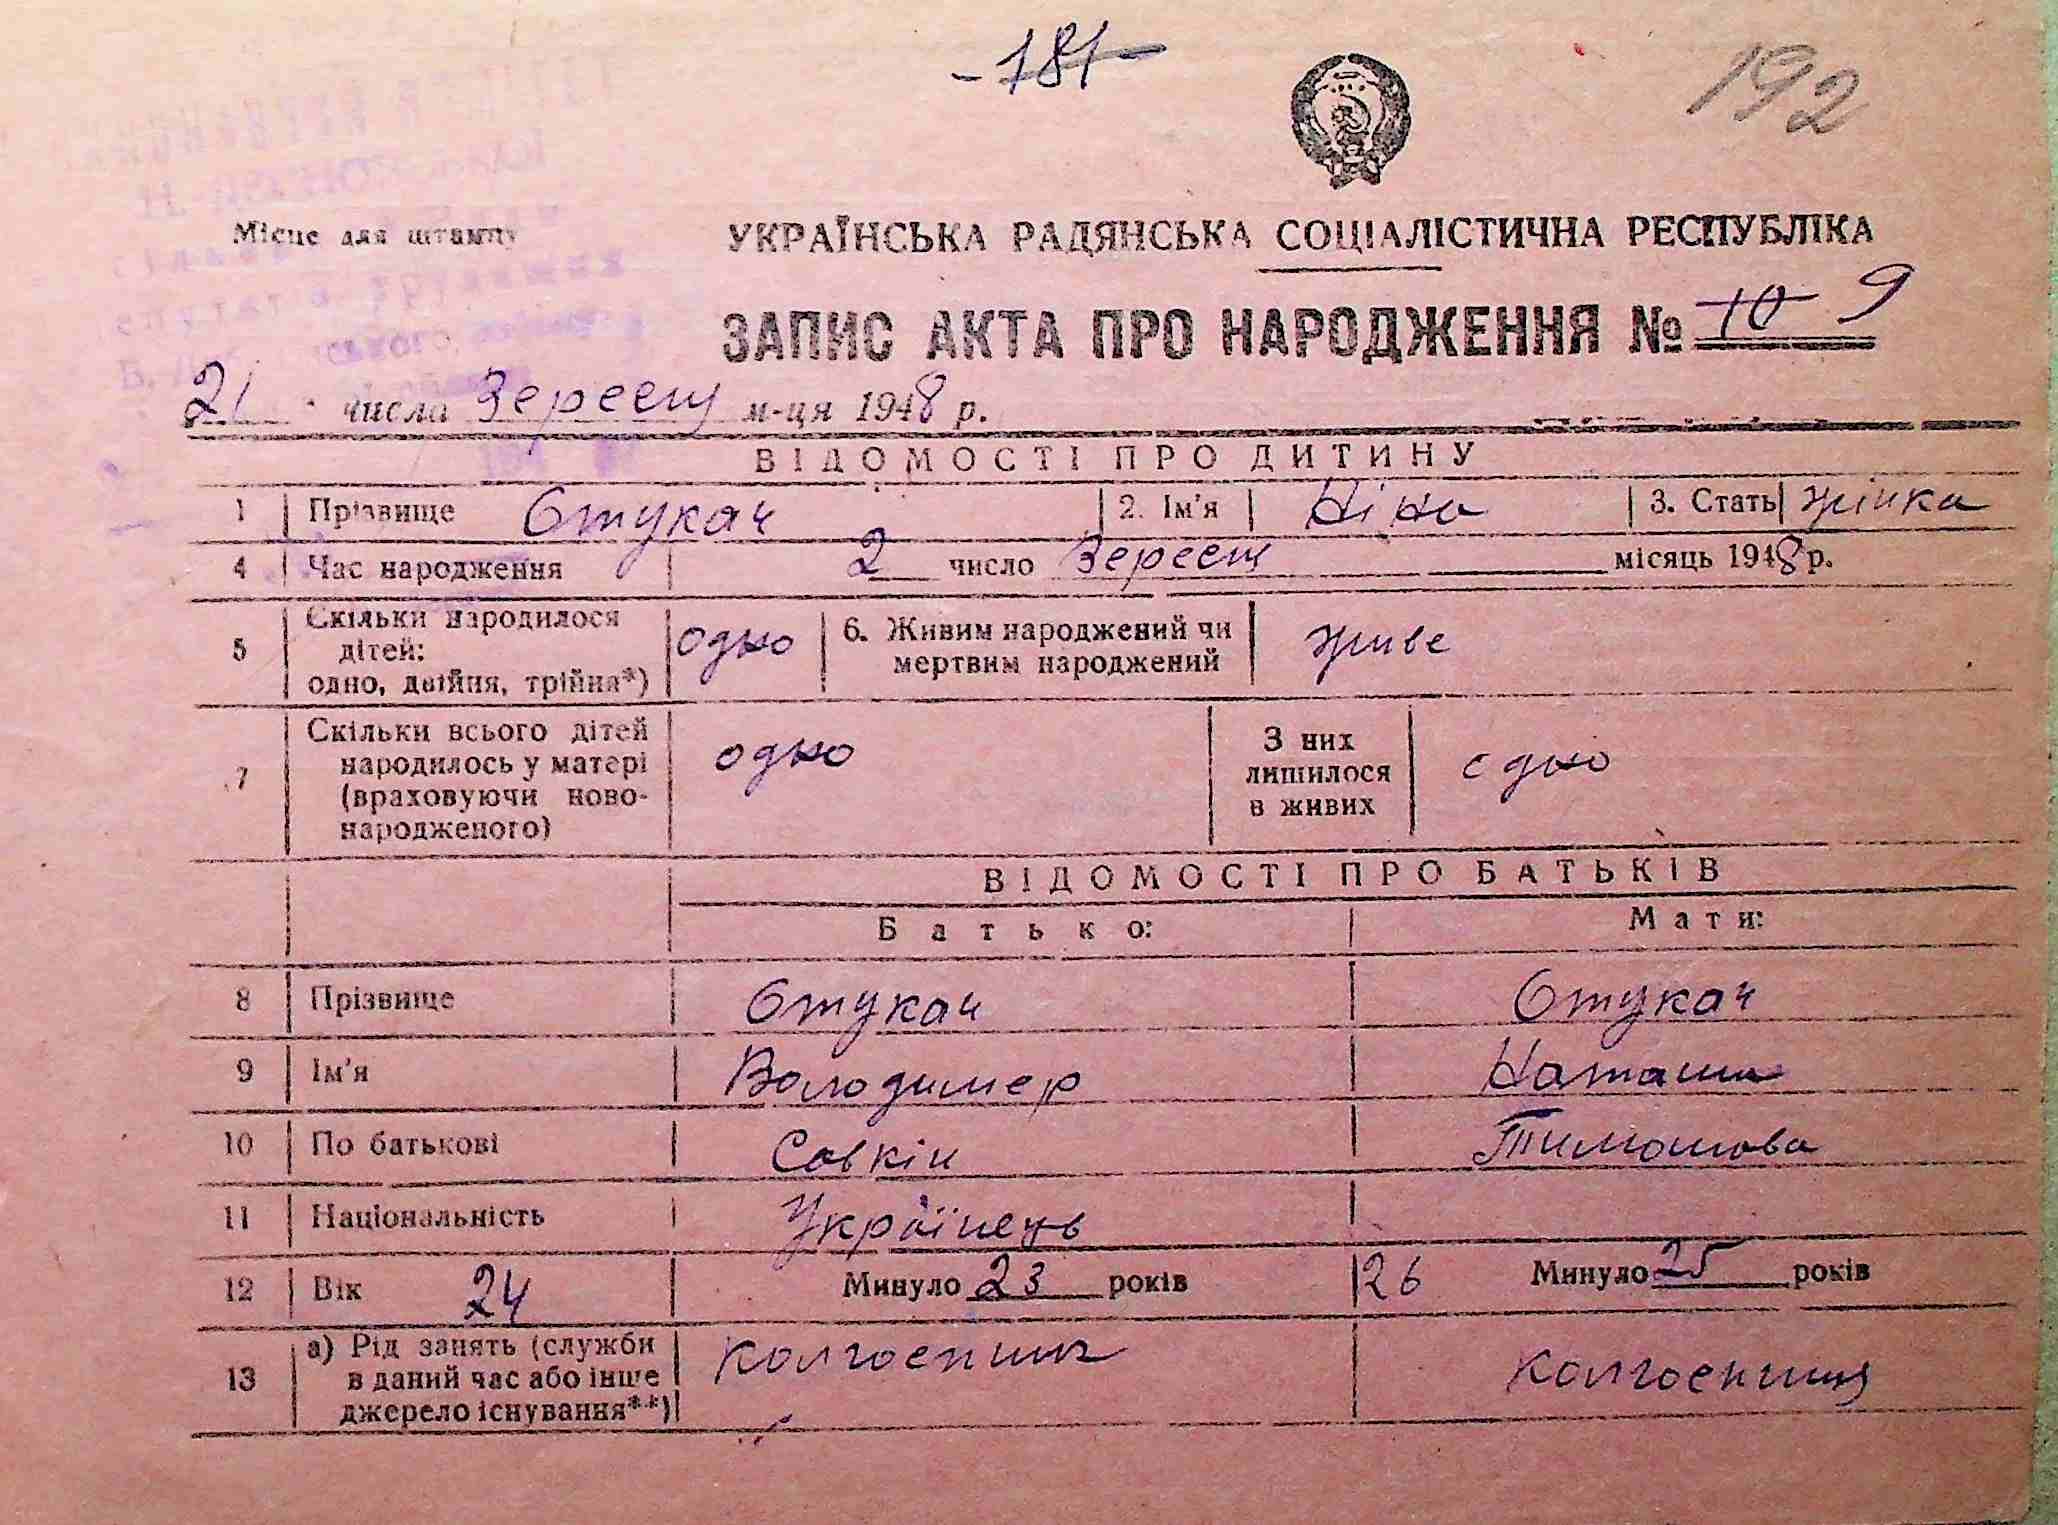 -181-
192
Місце для штампу
УКРАЇНСЬКА РАДЯНСЬКА СОЦІАЛІСТИЧНА РЕСПУБЛІКА
ЗАПИС АКТА ПРО НАРОДЖЕННЯ № 10 9
21 числа Вересня м-ця 1948 р.
ВІДОМОСТІ ПРО ДИТИНУ
1 Прізвище Стукач 2. Ім'я Ніна 3. Стать жінка
4 Час народження 2 число Вересня місяць 1948 р.
5 Скільки народилося дітей: одно, двійня, трійня*) одно 6. Живим народжений чи мертвим народжений живе
7 Скільки всього дітей народилось у матері (враховуючи ново-народженого) одно З них лишилося в живих одно
ВІДОМОСТІ ПРО БАТЬКІВ
Батько: Мати:
8 Прізвище Стукач Стукач
9 Ім'я Володимер Наташа
10 По батькові Савкін Тимошова
11 Національність Українець
12 Вік 24 Минуло 23 років 26 Минуло 25 років
13 а) Рід занять (служби в даний час або інше джерело існування**) колгоспник колгоспниця